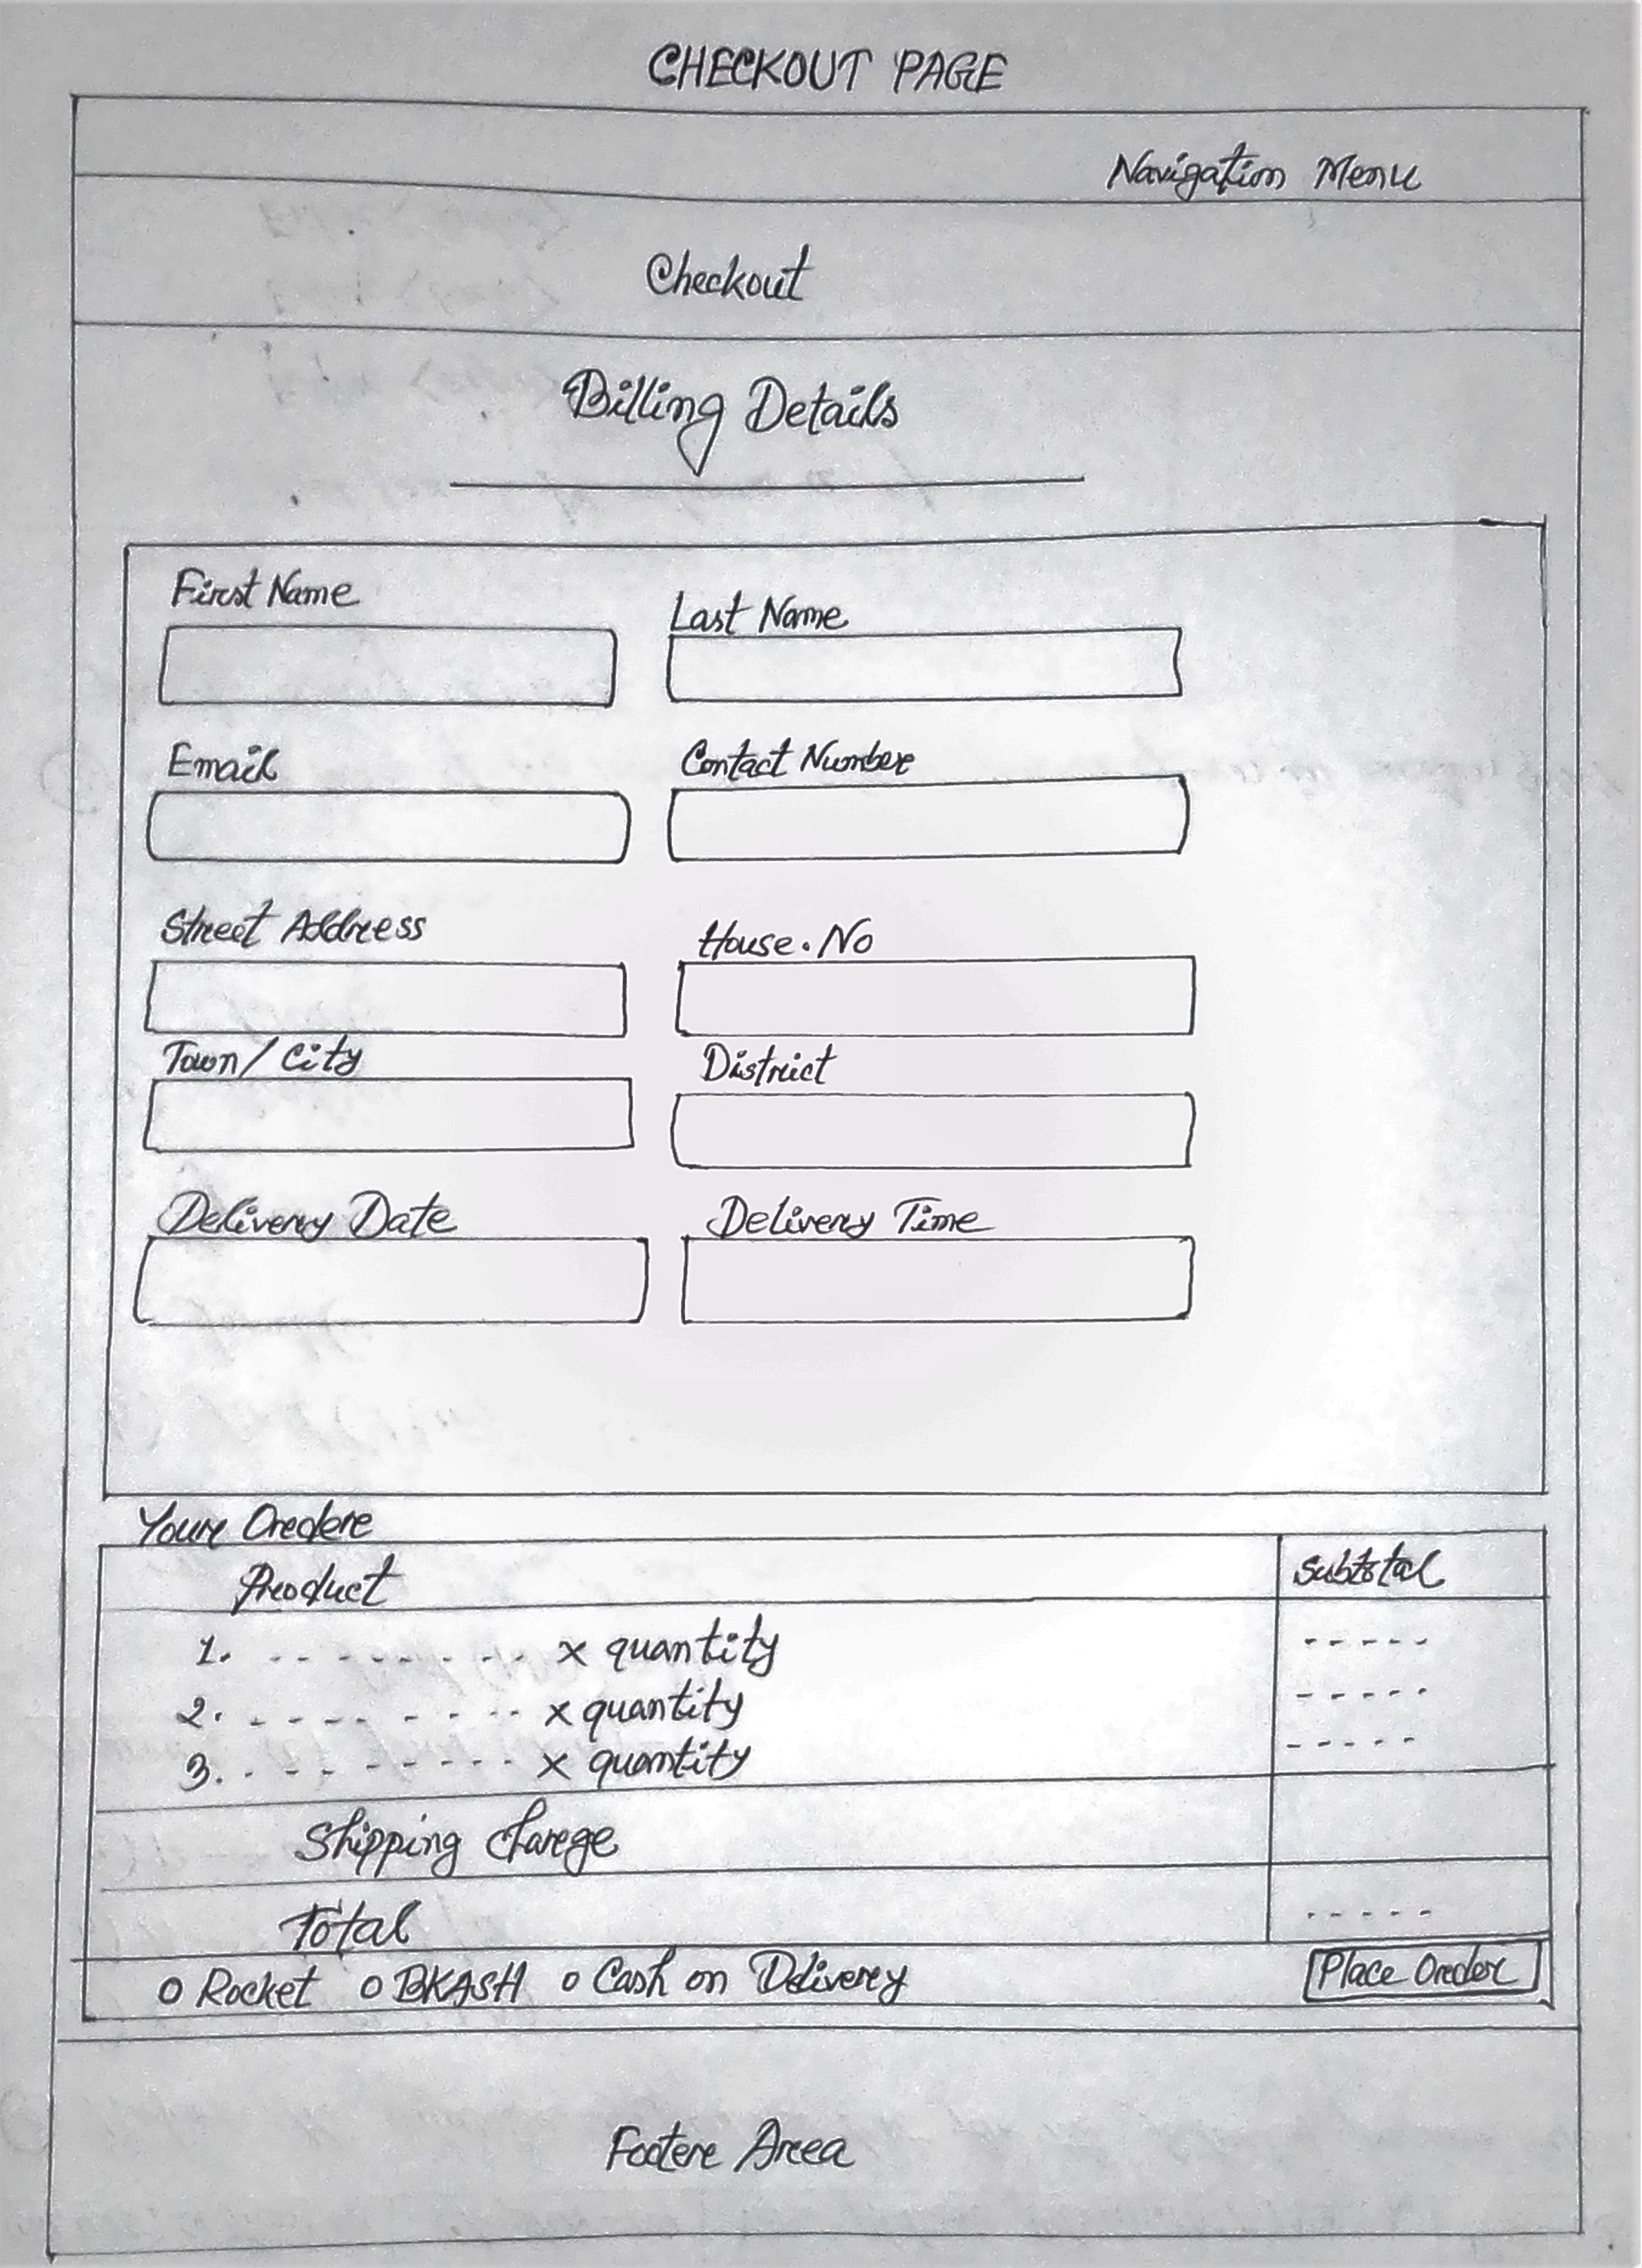 CHECKOUT PAGE
Navigation Menu
Checkout
Billing Details
First Name
Last Name
Email
Contact Number
Street Address
House.No
Town/City
District
Delivery Date
Delivery Time
Your Order
Product
Subtotal
1. - - - - - - - - - x quantity - - - - -
2. - - - - - - - - - x quantity - - - - -
3. - - - - - - - - - x quantity - - - - -
Shipping charge
Total - - - - -
o Rocket o BKASH o Cash on Delivery
Place Order
Footer Area